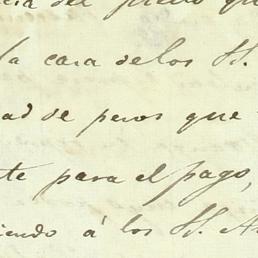 del que
la casa de los SS.
ad de pesos que
te para el pago,
iendo á los SS. A